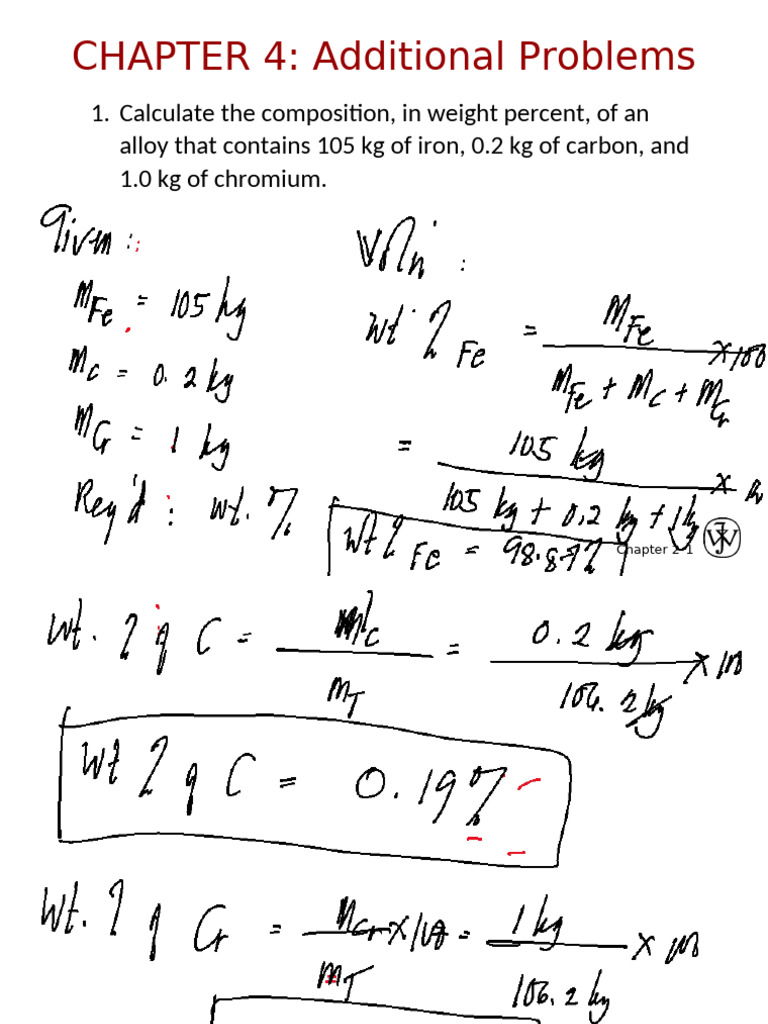 CHAPTER 4: Additional Problems
1. Calculate the composition, in weight percent, of an
alloy that contains 105 kg of iron, 0.2 kg of carbon, and
1.0 kg of chromium.
Given :
m_Fe = 105 kg
m_C = 0.2 kg
m_Cr = 1 kg
Req'd : wt. %
Sol'n :
wt % Fe = m_Fe / (m_Fe + m_C + m_Cr) × 100
= 105 kg / (105 kg + 0.2 kg + 1 kg) ×
wt % Fe = 98.87%
Chapter 2-1
wt. % of C = m_C / m_T = 0.2 kg / 106.2 kg × 100
wt % of C = 0.19%
wt. % of Cr = m_Cr × 100 / m_T = 1 kg / 106.2 kg × 100